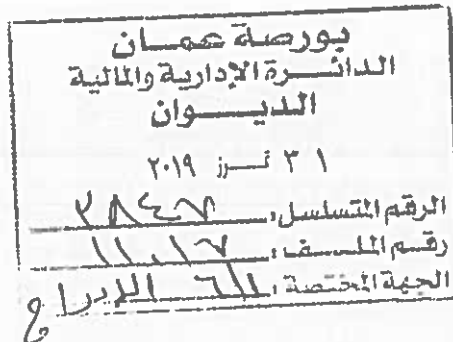 بورصة عمان
الدائرة الإدارية والمالية
الديوان
٣١ تموز ٢٠١٩
الرقم المتسلسل: ٣٨٤٧
رقم الملف: ١١٠١٧
الجهة المختصة: الإدراج